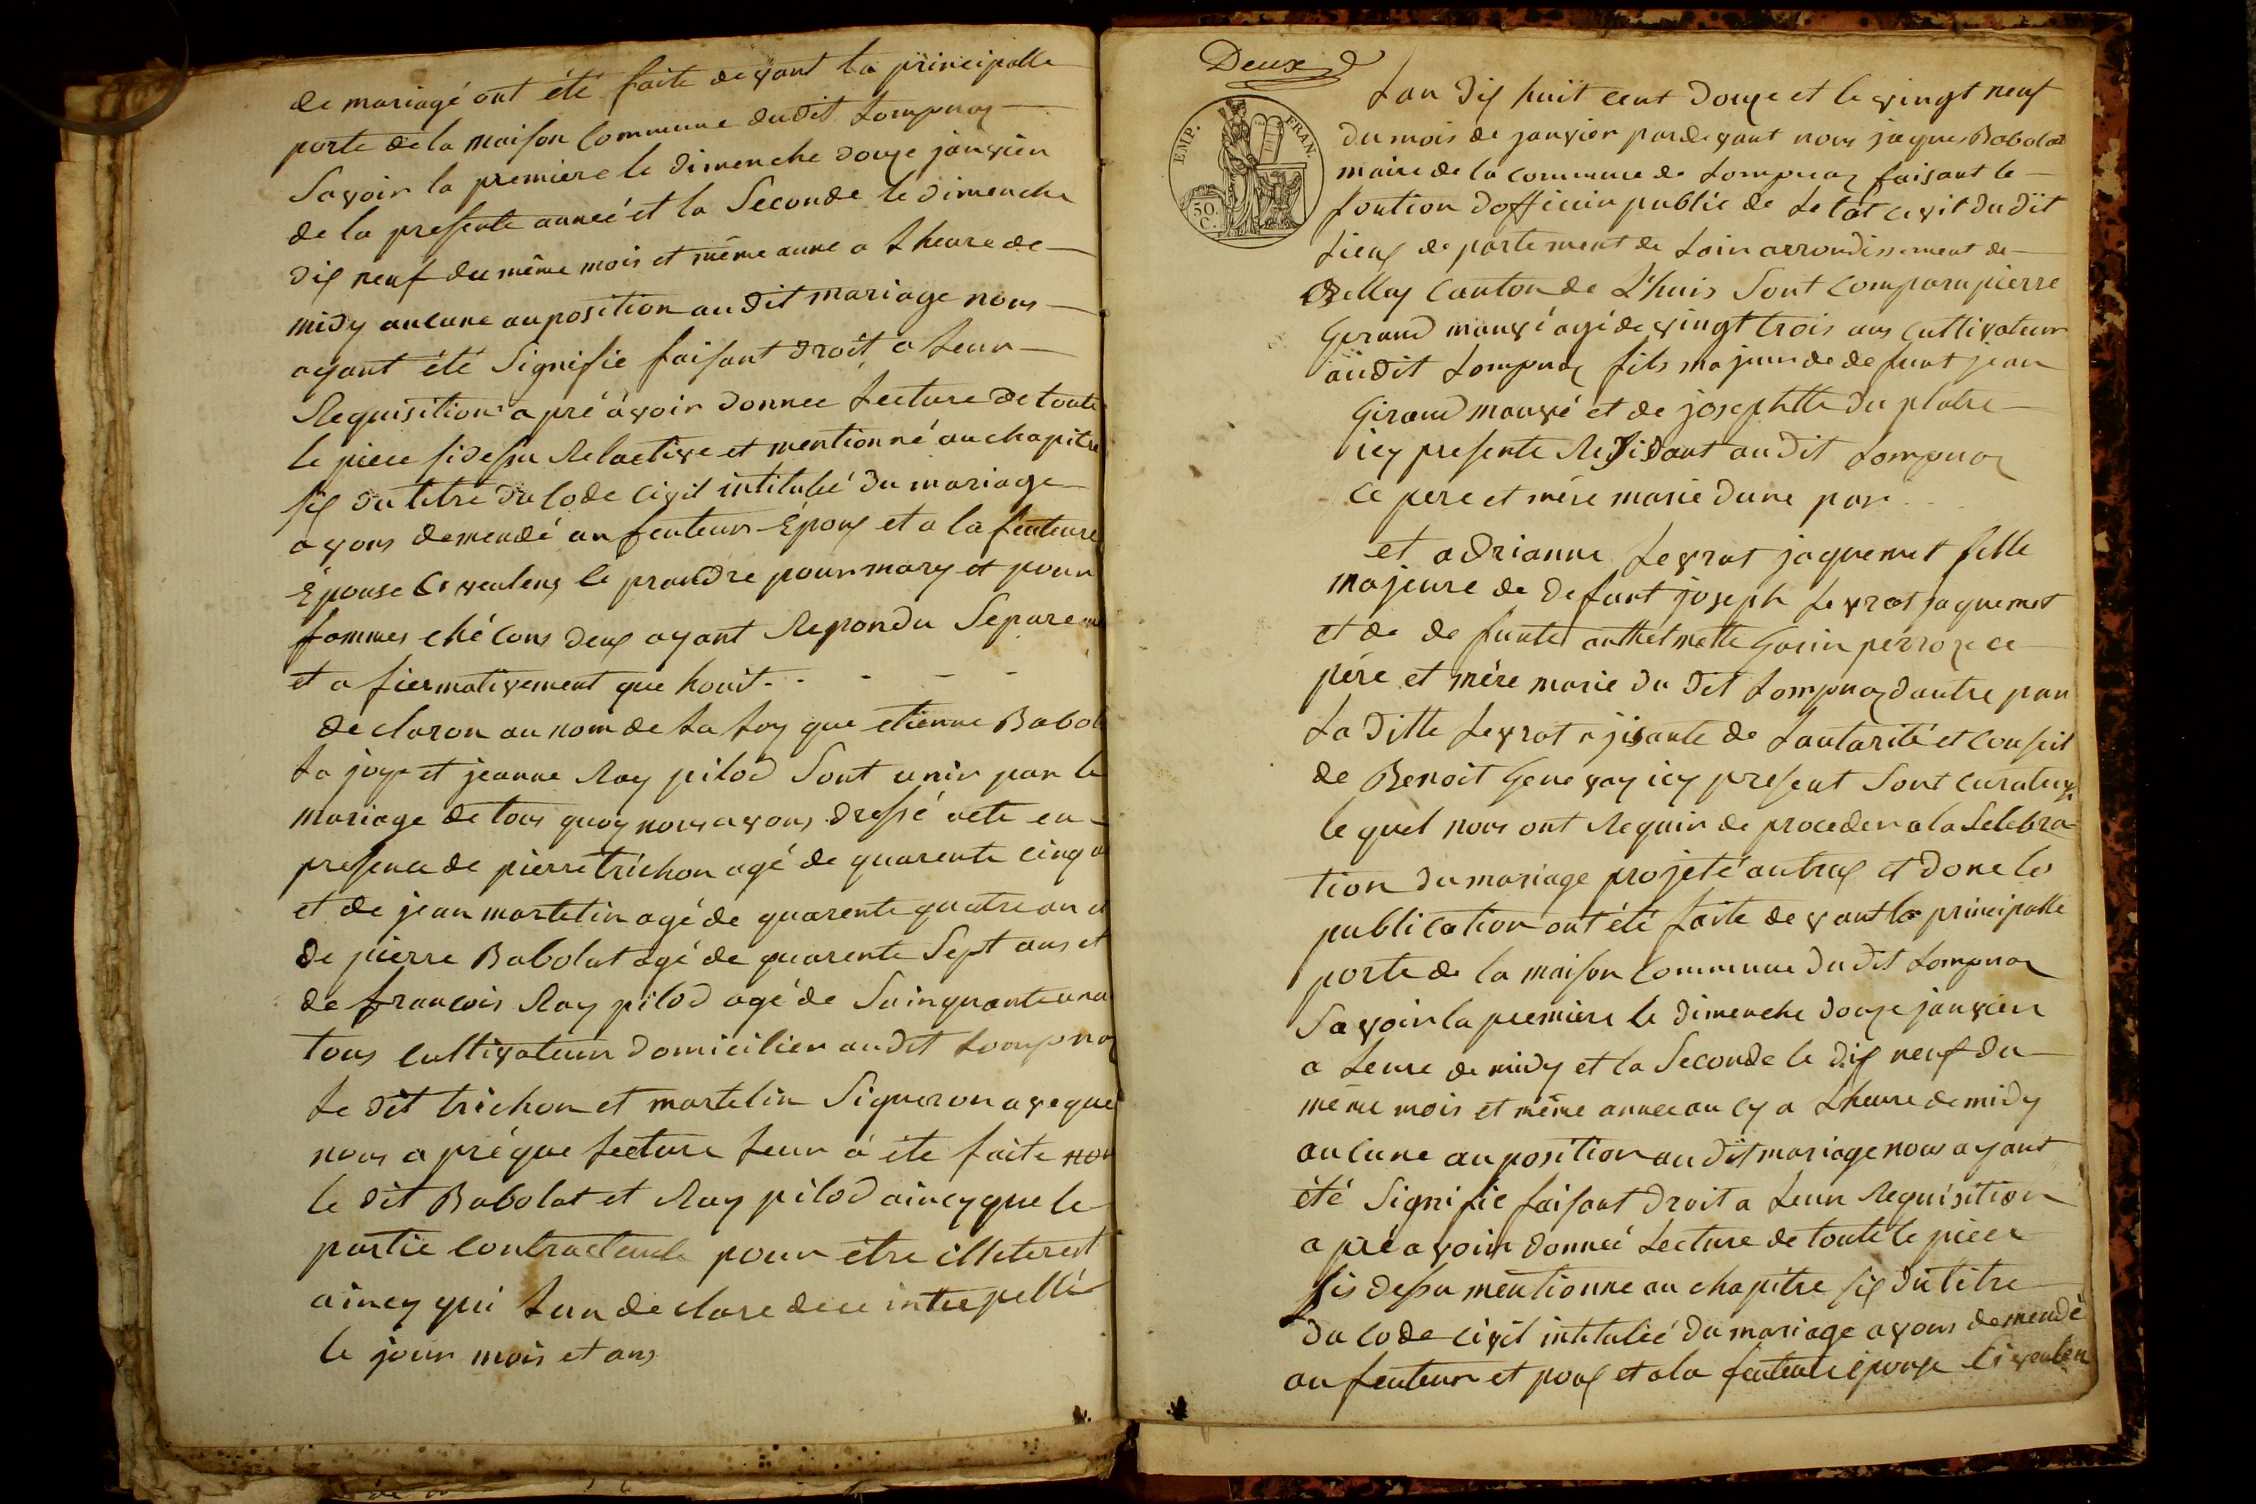 de mariagé ont été faite devant la principalle
porte de la maison Commune dudit Lompnaz
Savoir la premiere le dimenche douze janvier
de la presente anneé et la Seconde le dimenche
dix neuf du même mois et même anne a Lheure de
midy aucune auposition au dit mariage nous
ayant été Signifie faisant droit a Leur
Requisition apré avoir donnee Lecture de toute
le piece sidessu Relactive et mentionné au chapitre
six du titre du Code Civil intitulié du mariage
avons demendé au feuteur Époux et a la feuteure
Épouse Ci veulenz le prandre pour mary et pour
fammes chécons deux ayant Repondu Separeme
et afiermativement que houit
declaron au nom de La Loy que etienne Babol
La joye et jeanne Ray pilod Sont unir par le
mariage de tous quoy nous avons dressé acte en
presence de pierre trichon agé de quarente cinq a
et de jean martelin agé de quarente quatre an et
de pierre Babolat agé de quarente Sept ans et
de francois Ray pilod agé de Sainquante ana
tous Cultivateur domicilier au dit Lompnaz
Le dit trichon et martelin Signeron aveque
nous apré que Lecture Leur a éte faite non
le dit Babolat et Ray pilod aincy que le
partie Contractante pour etre illeterest
aincy qui Lon declare de ce interpellé
le jour mois et ans
Deux
EMP. FRAN.
50. C.
Lan dix huit cent douze et le vingt neuf
du mois de janvier pardevant nous jaques Babolat
maire de la commune de Lompnaz faisant le
fontion dofficier public de Letat civil du dit
Lieux departement de Lain arrondissement de
Bellay Canton de L'huis Sont Comparu pierre
Giraud mauvé agé de vingt trois ans Cultivateur
audit Lompnaz fils majeur de defunt jean
Giraud mauvé et de josephtte du platre
icy presente Residant au dit Lompnaz
Ce pere et mére marié dune par
et adrianne Levrat jaquemet fille
majeure de defunt joseph Levrat jaquemet
et de defunte anthelmette Gorin perroz ce
pére et mére marie du dit Lompnaz dautre par
La ditte Levrat ajisante de Lautarité et Conseil
de Benoit Genevay icy present Sont curateur
le quel nous ont Requir de proceder a la Selebra-
tion du mariage projeté autrax et done les
publication ont été faite devant la principalle
porte de la maison Commune du dit Lompnaz
Savoir la premiere le dimenche douze janvier
a Leure de midy et la Seconde le dix neuf du
même mois et même annee au cy a Lheure de midy
aucune auposition au dit mariage nous ayant
été Signifie faisant droit a Leur Requisition
apré avoir donneé Lecture de toute le piece
sis dessu mentionne au chapitre six du titre
du Code Civil intitulié du mariage avons demendé
au feuteur et poux et a la feuteure épouse Ci veulen